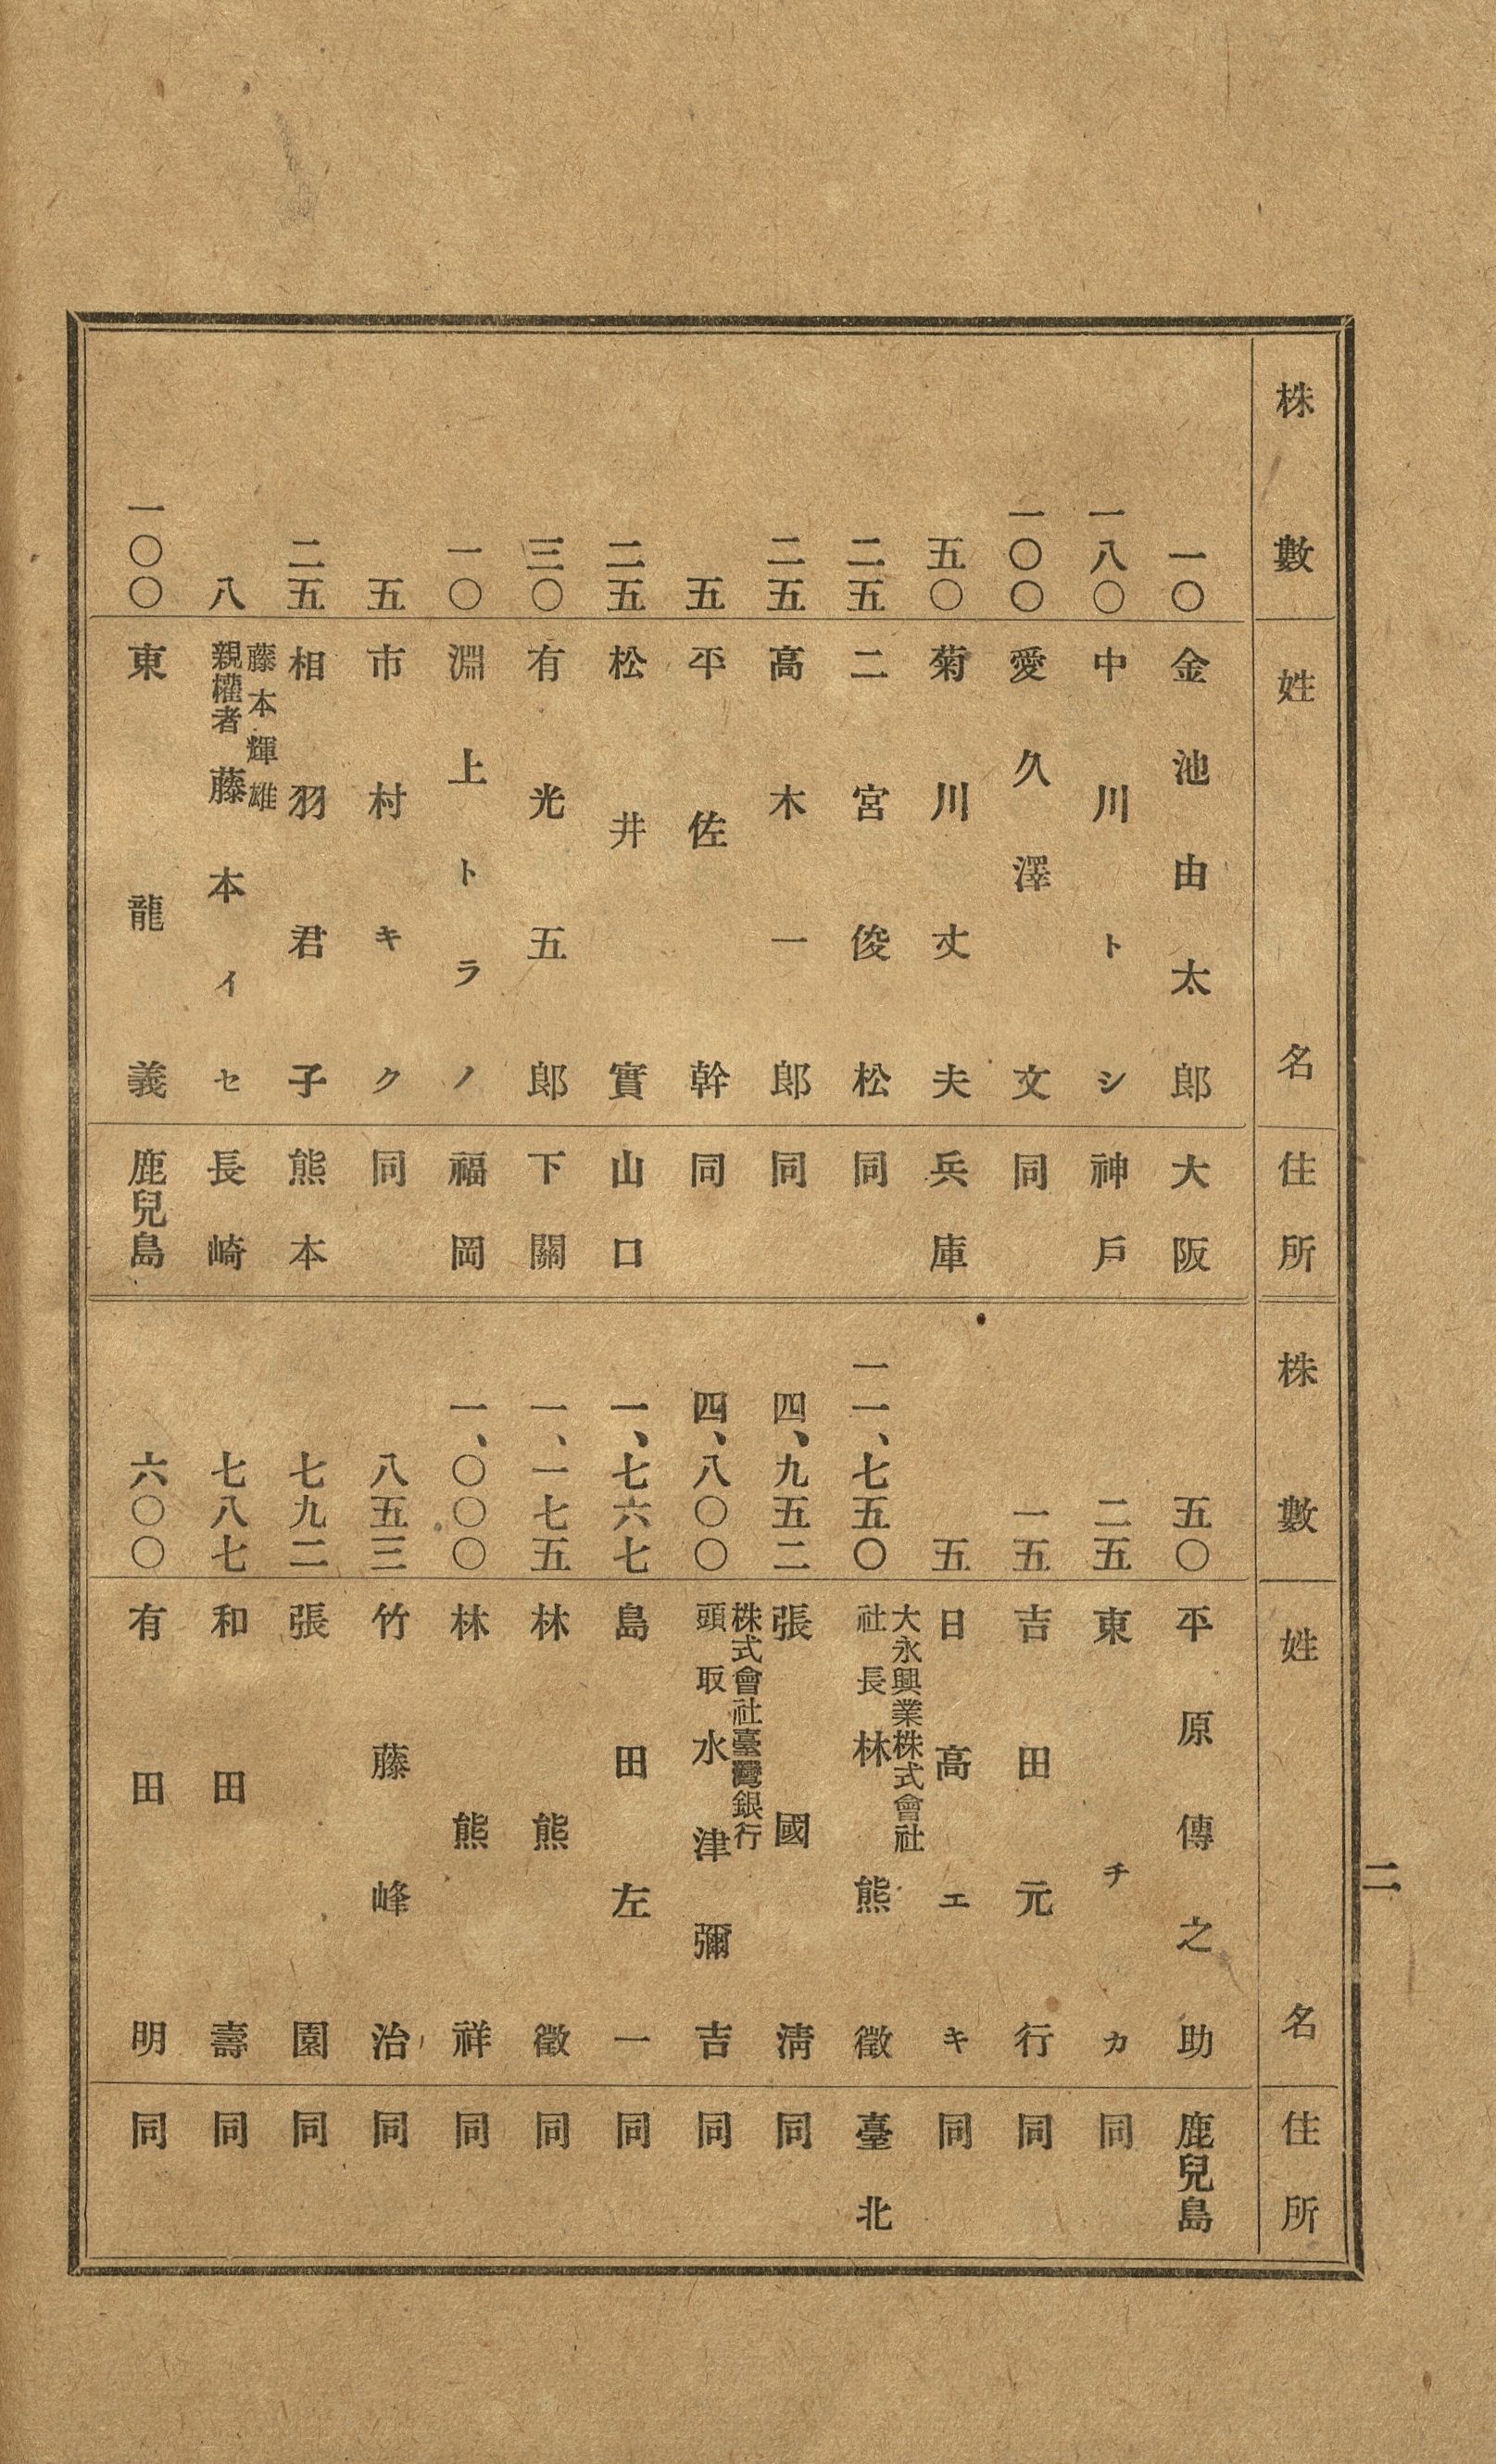 株數 姓名 住所
一〇 金池由太郎 大阪
一八〇 中川トシ 神戶
一〇〇 愛久澤文 同
五〇 菊川丈夫 兵庫
二五 二宮俊松 同
二五 高木一郎 同
五 平佐幹 同
二五 松井實 山口
三〇 有光五郎 下關
一〇 淵上トラノ 福岡
五 市村キク 同
二五 相羽君子 熊本
八 藤本輝雄親權者 藤本イセ 長崎
一〇〇 東龍義 鹿兒島
株數 姓名 住所
五〇 平原傳之助 鹿兒島
二五 東チカ 同
一五 吉田元行 同
五 日高エキ 同
一一、七五〇 大永興業株式會社社長 林熊徵 臺北
四、九五二 張國淸 同
四、八〇〇 株式會社臺灣銀行頭取 水津彌吉 同
一、七六七 島田左一 同
一、一七五 林熊徵 同
一、〇〇〇 林熊祥 同
八五三 竹藤峰治 同
七九二 張園 同
七八七 和田壽 同
六〇〇 有田明 同
二